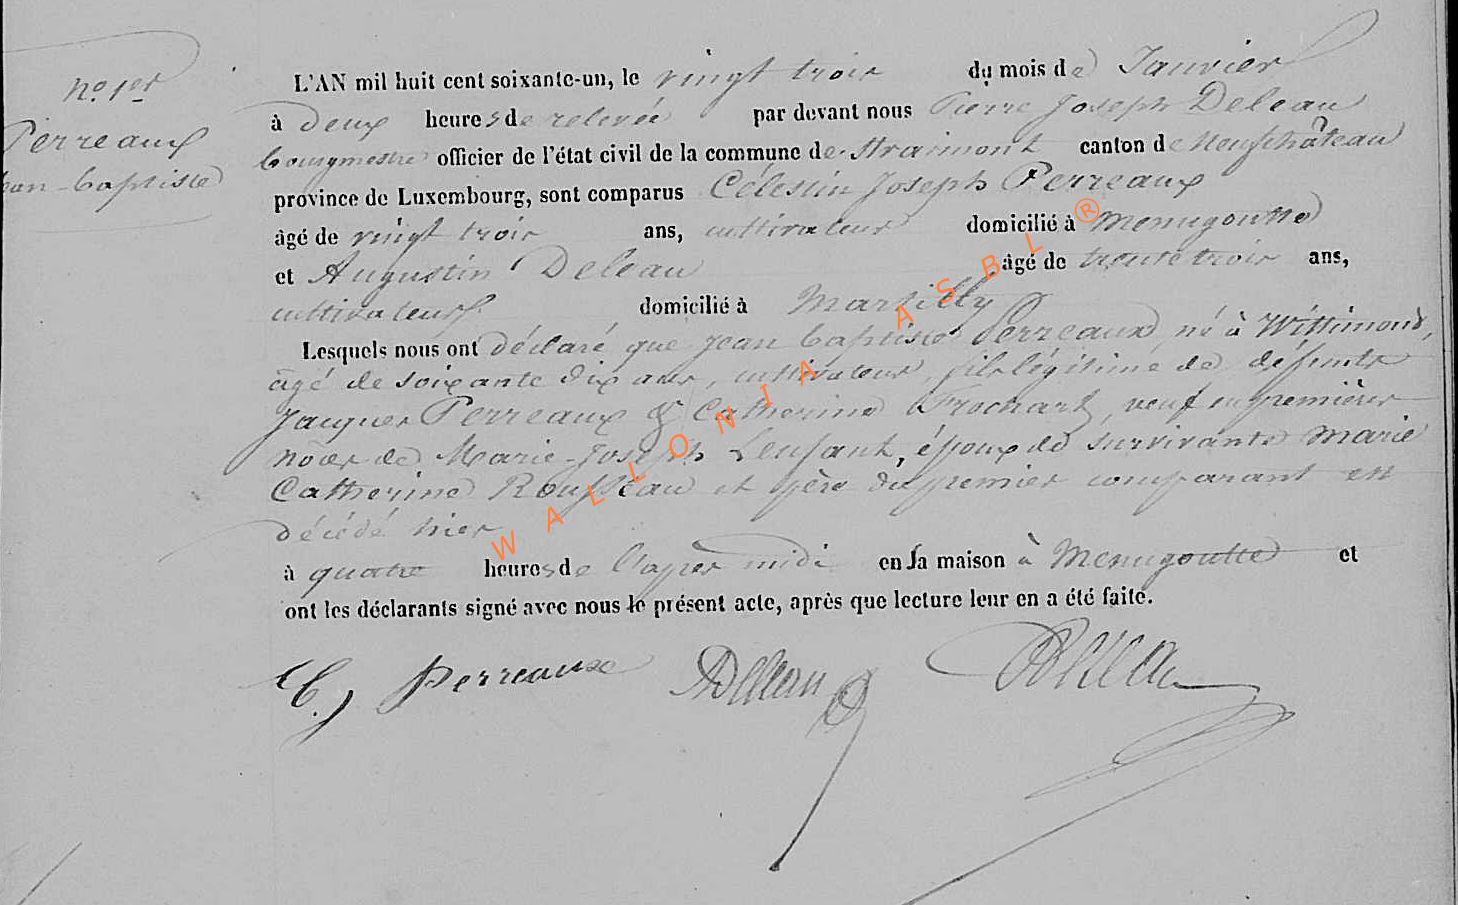 No. 1er
Perreaux
Jean-baptiste
L'AN mil huit cent soixante-un, le vingt trois du mois de Janvier
à deux heures de relevée par devant nous Pierre Joseph Deleau
bourgmestre officier de l'état civil de la commune de Straimont canton de Neufchâteau
province de Luxembourg, sont comparus Célestin Joseph Perreaux
âgé de vingt trois ans, cultivateur domicilié à Menugoutte
et Augustin Deleau âgé de trente trois ans,
cultivateur domicilié à Martilly
Lesquels nous ont déclaré que Jean baptiste Perreaux, né à Wittimont,
âgé de soixante dix ans, cultivateur, fils légitime de défunts
Jacques Perreaux & Catherine Frochart, veuf en premières
nôces de Marie-Joseph Lenfant, époux de survivante Marie
Catherine Rousseau et père du premier comparant est
décédé hier
à quatre heures de l'après midi en sa maison à Menugoutte et
ont les déclarants signé avec nous le présent acte, après que lecture leur en a été faite.
C. J Perreaux ADeleau Deleau
WALLONIA ASBL ®